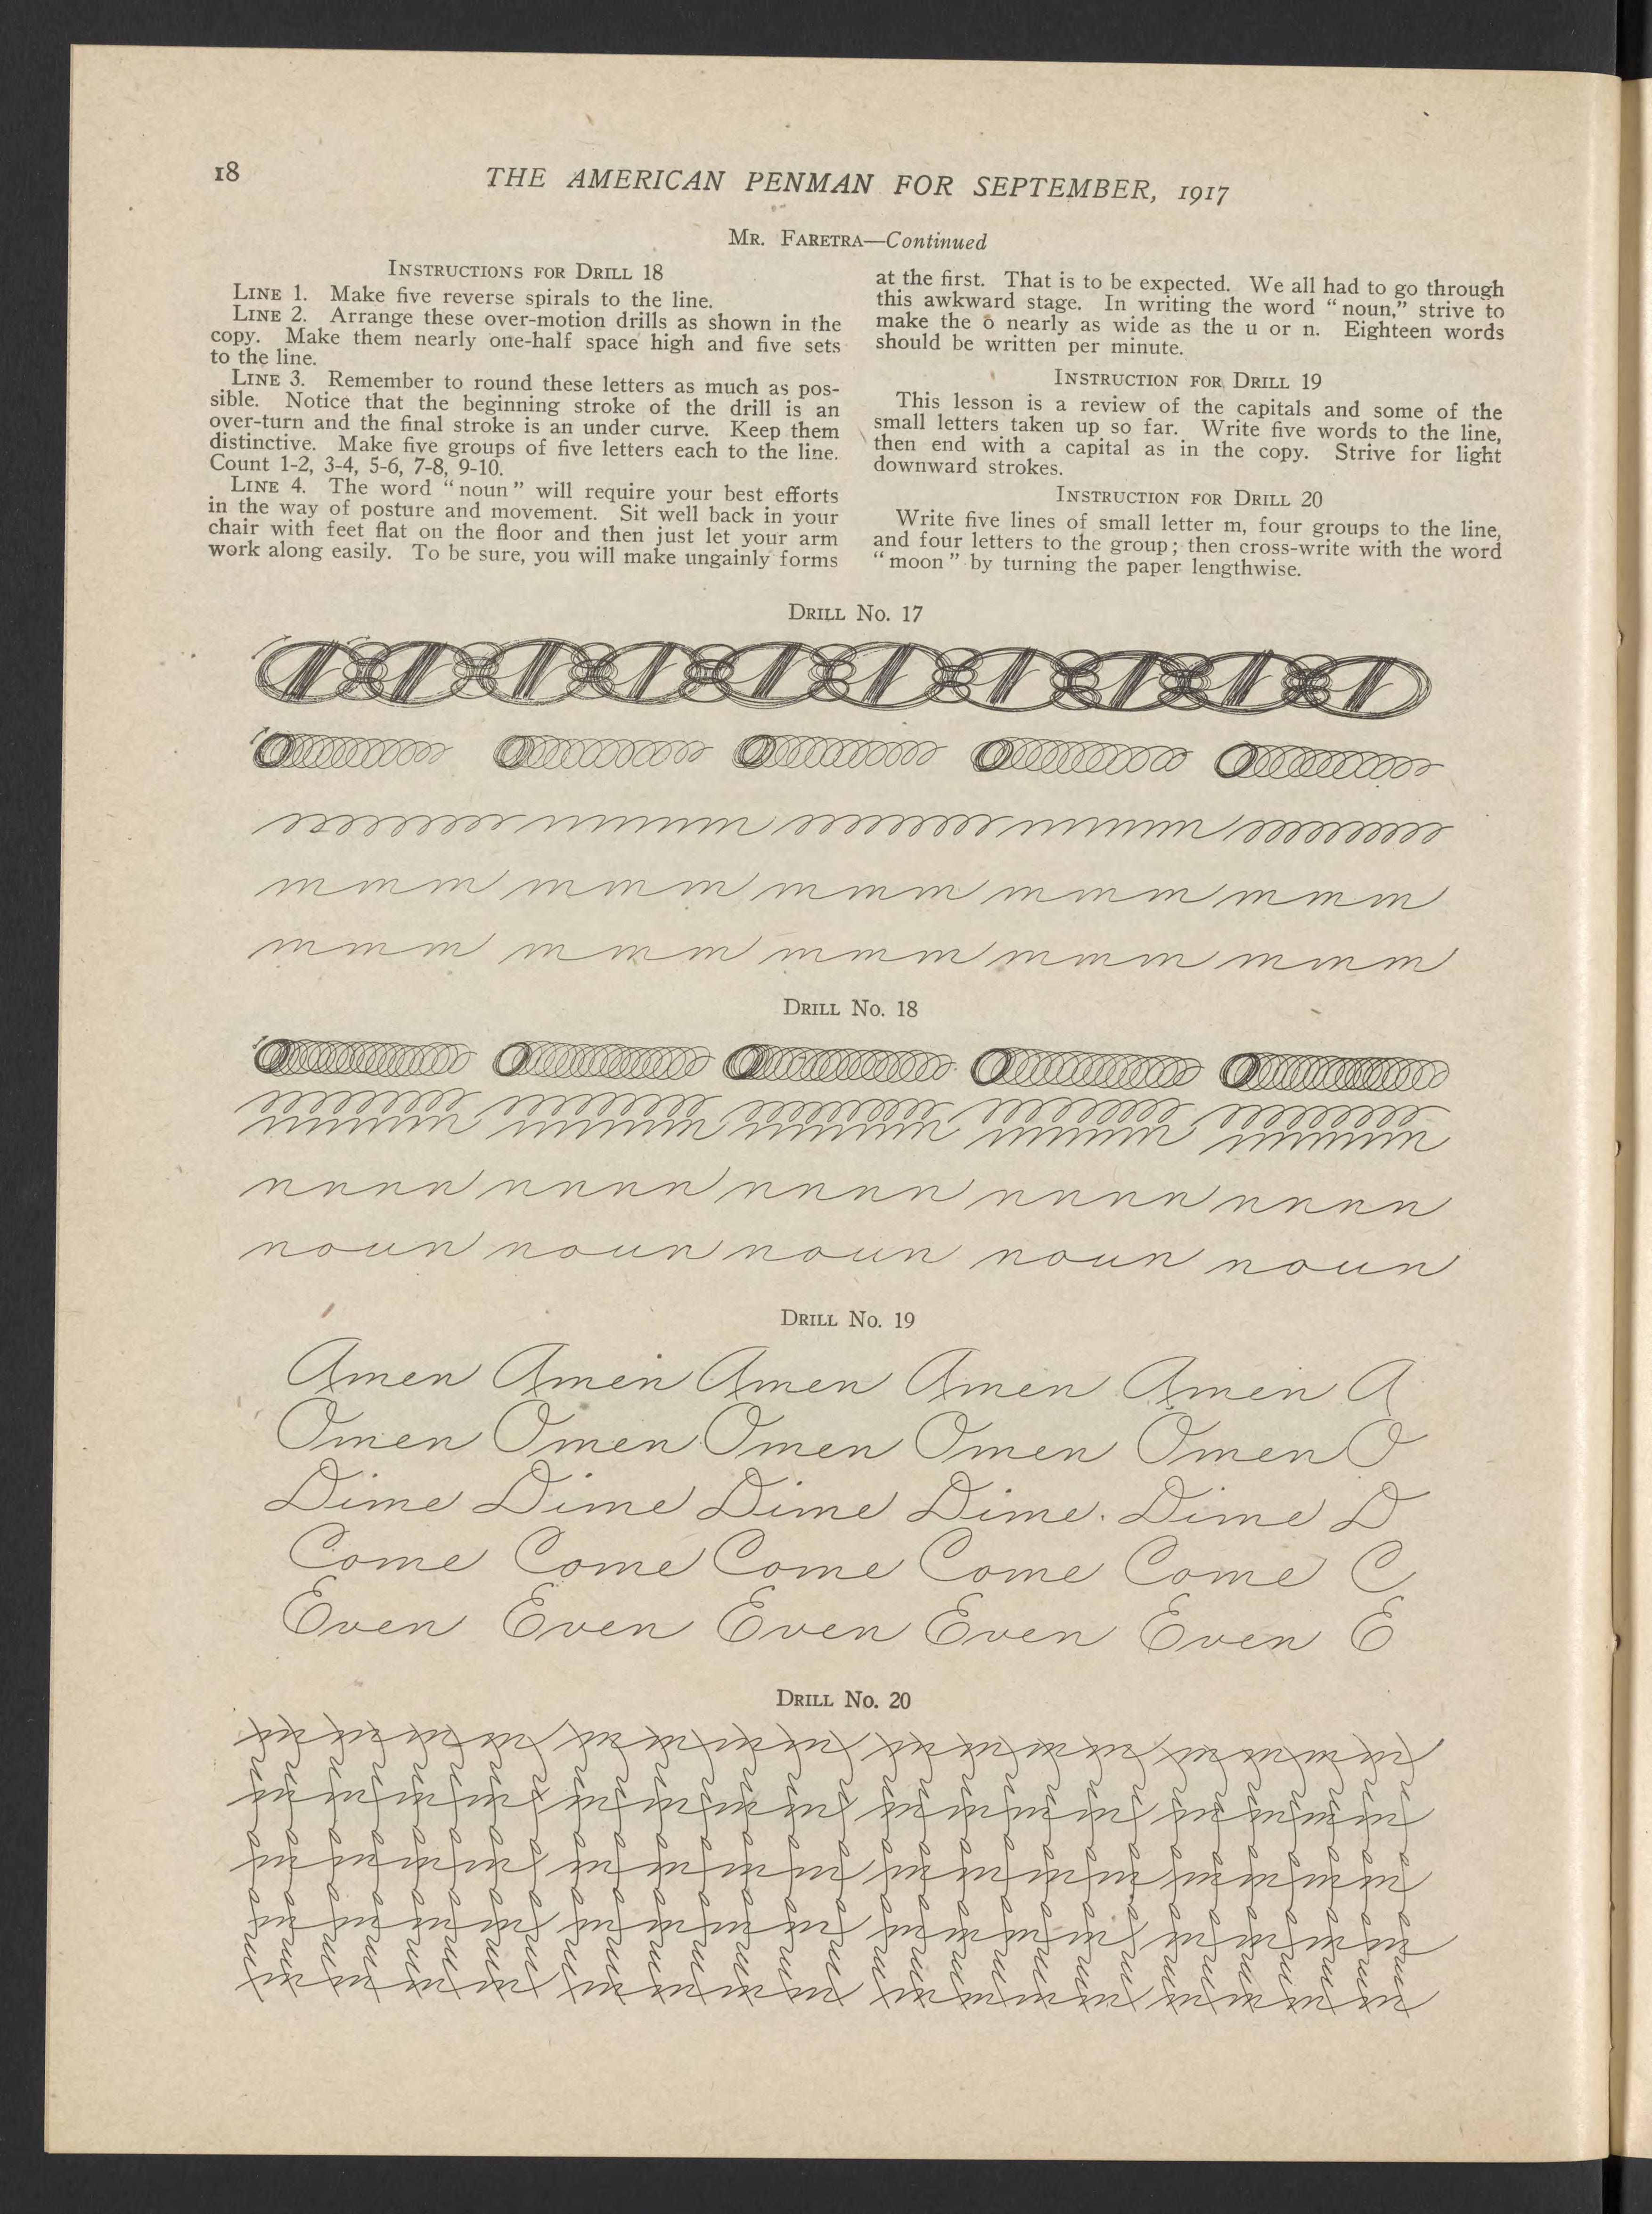 18
THE AMERICAN PENMAN FOR SEPTEMBER, 1917
MR. FARETRA—Continued
INSTRUCTIONS FOR DRILL 18
LINE 1. Make five reverse spirals to the line.
LINE 2. Arrange these over-motion drills as shown in the
copy. Make them nearly one-half space high and five sets
to the line.
LINE 3. Remember to round these letters as much as pos-
sible. Notice that the beginning stroke of the drill is an
over-turn and the final stroke is an under curve. Keep them
distinctive. Make five groups of five letters each to the line.
Count 1-2, 3-4, 5-6, 7-8, 9-10.
LINE 4. The word “noun” will require your best efforts
in the way of posture and movement. Sit well back in your
chair with feet flat on the floor and then just let your arm
work along easily. To be sure, you will make ungainly forms
at the first. That is to be expected. We all had to go through
this awkward stage. In writing the word “noun,” strive to
make the o nearly as wide as the u or n. Eighteen words
should be written per minute.
INSTRUCTION FOR DRILL 19
This lesson is a review of the capitals and some of the
small letters taken up so far. Write five words to the line,
then end with a capital as in the copy. Strive for light
downward strokes.
INSTRUCTION FOR DRILL 20
Write five lines of small letter m, four groups to the line,
and four letters to the group; then cross-write with the word
“moon” by turning the paper lengthwise.
DRILL NO. 17
m m m m m m m m m m m m m m m
m m m m m m m m m m m m m m m
DRILL NO. 18
nnnn nnnn nnnn nnnn nnnn
noun noun noun noun noun
DRILL NO. 19
Amen Amen Amen Amen Amen A
Omen Omen Omen Omen Omen O
Dime Dime Dime Dime. Dime D
Come Come Come Come Come C
Even Even Even Even Even E
DRILL NO. 20
m m m m m m m m m m m m m m m m
m m m m m m m m m m m m m m m m
m m m m m m m m m m m m m m m m
m m m m m m m m m m m m m m m m
m m m m m m m m m m m m m m m m